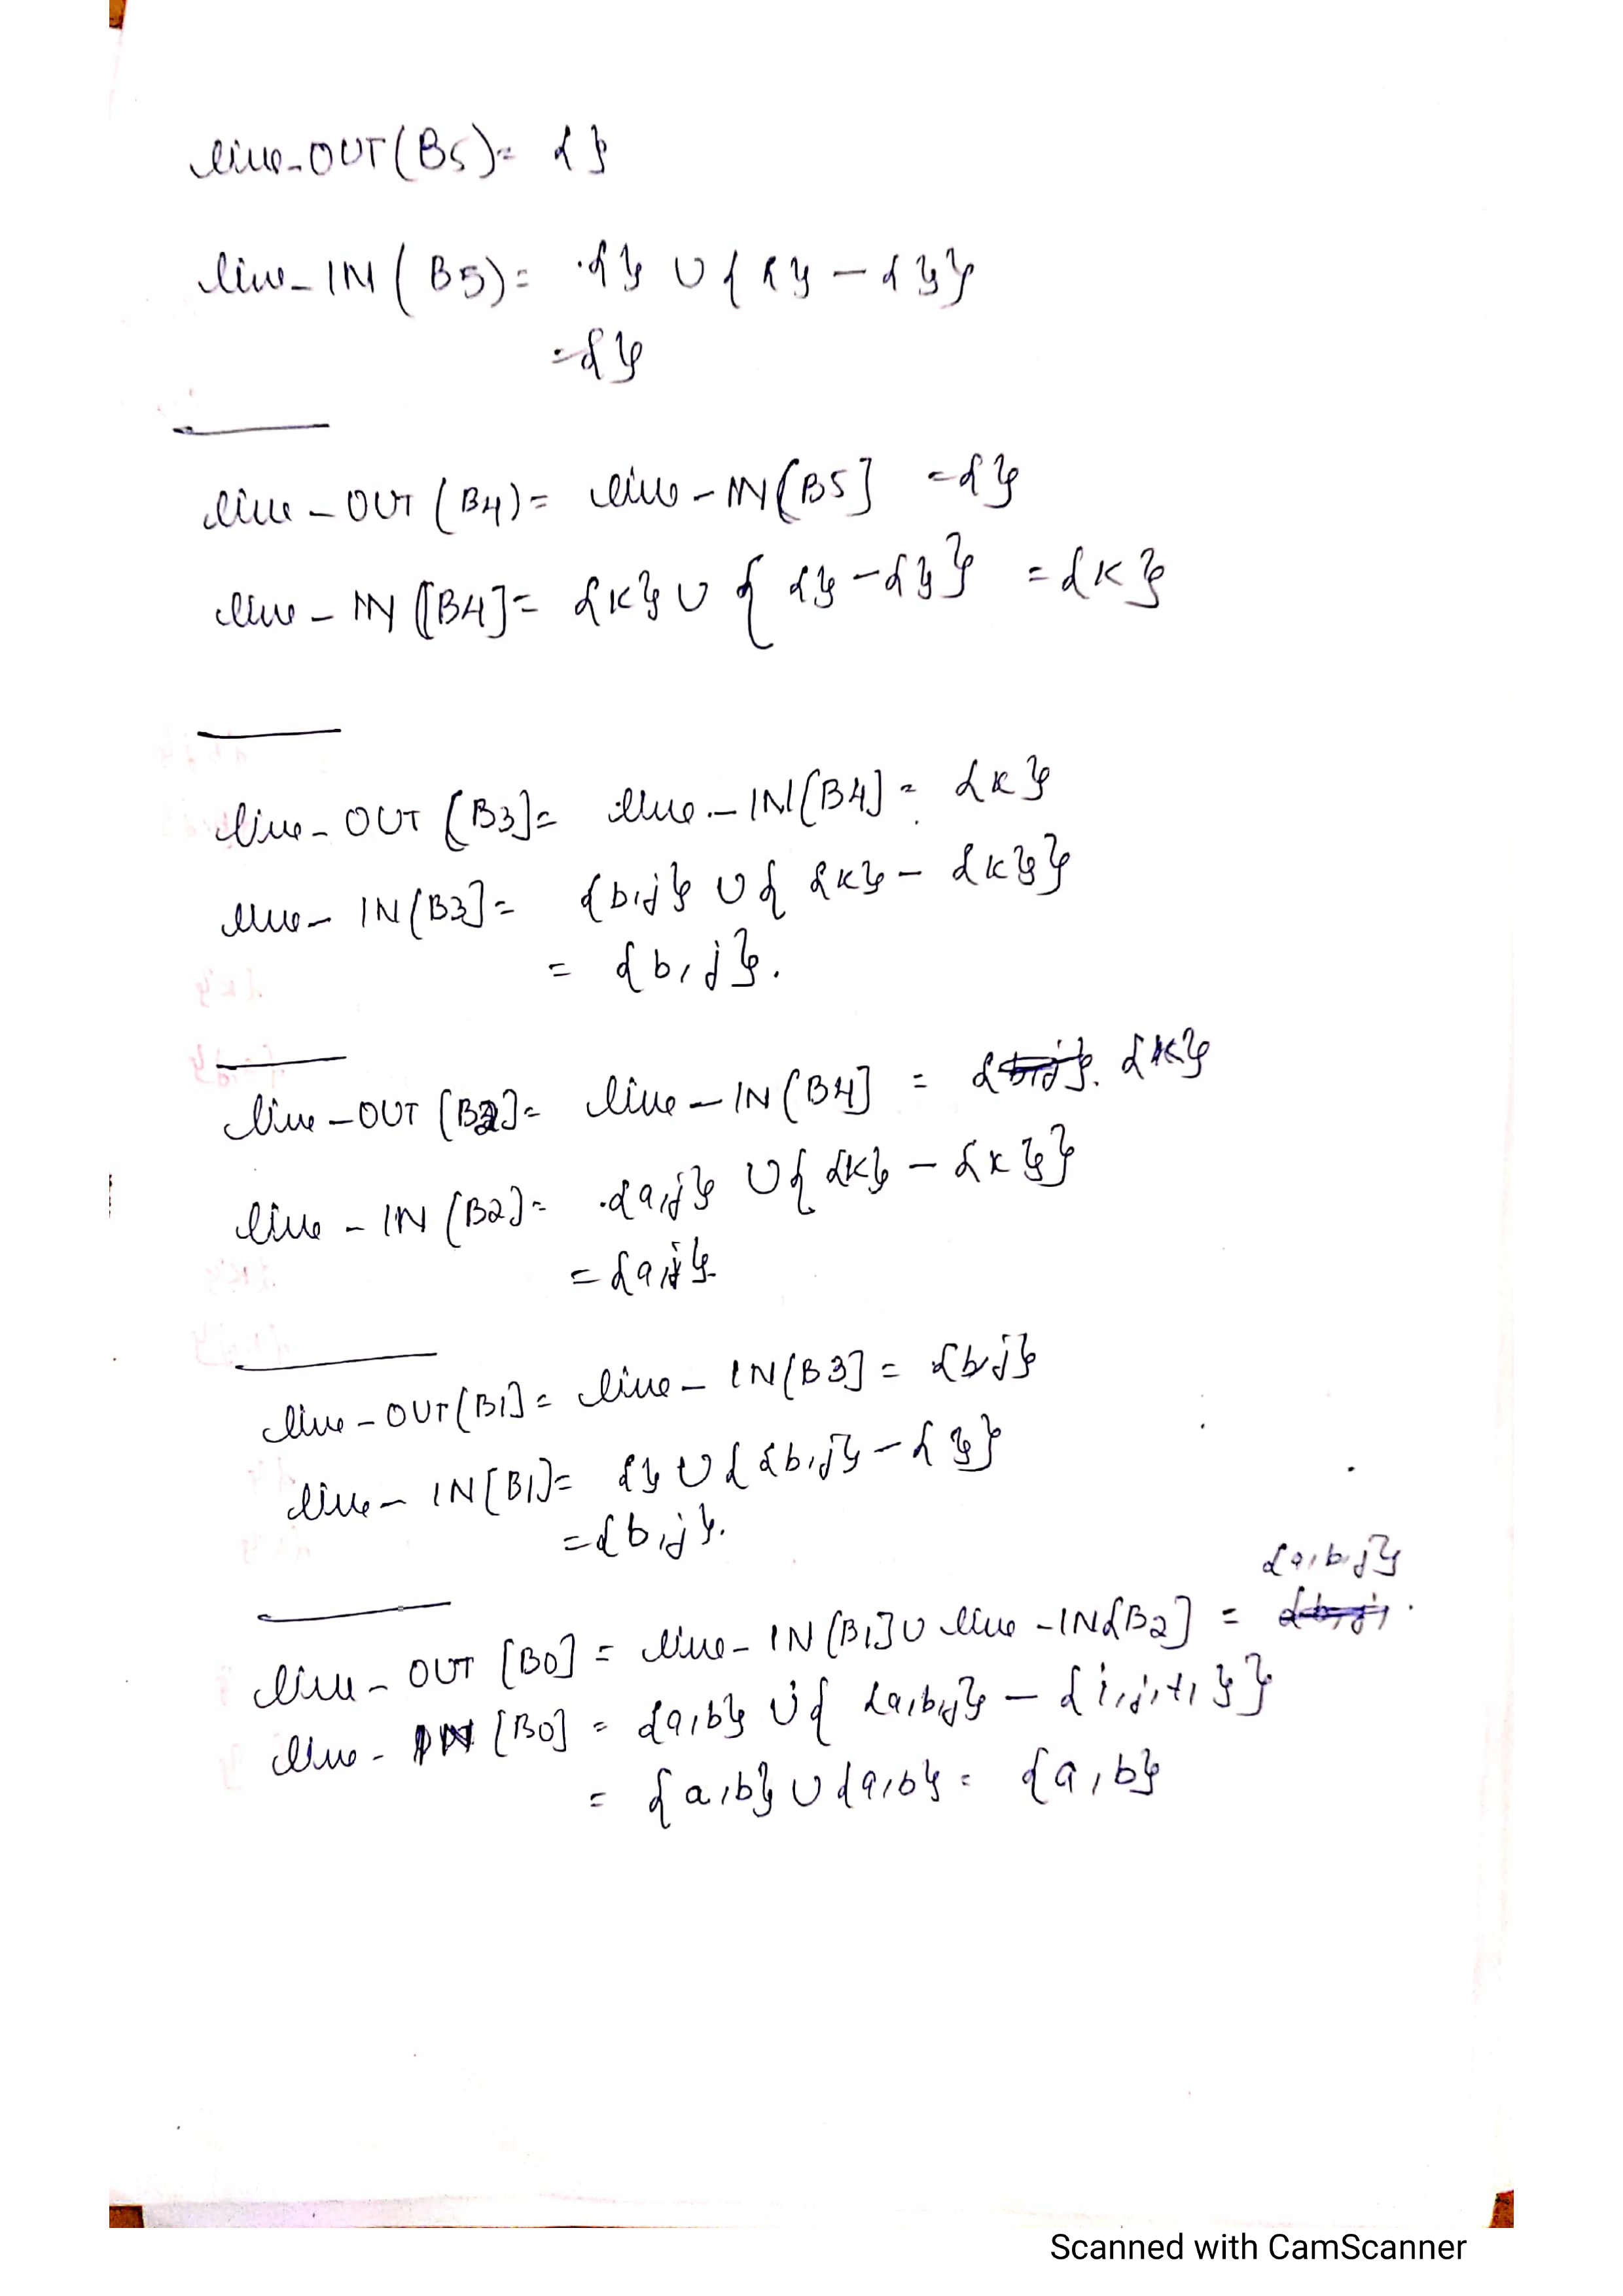 live-OUT(B5)= {}
live-IN(B5)= {} ∪ { {} - {} }
= {}
live-OUT(B4)= live-IN[B5] = {}
live-IN[B4]= {K} ∪ { {} - {} } = {K}
live-OUT[B3]= live-IN[B4] = {K}
live-IN[B3]= {b,j} ∪ { {K} - {K} }
= {b,j}.
live-OUT[B2]= live-IN[B4] = {b,j}. {K}
live-IN[B2]= {a,j} ∪ { {K} - {K} }
= {a,j}
live-OUT[B1]= live-IN[B3] = {b,j}
live-IN[B1]= {} ∪ { {b,j} - {} }
= {b,j}.
{a,b,j}
live-OUT [B0] = live-IN[B1] ∪ live-IN{B2] = {b,j}.
live-IN [B0] = {a,b} ∪ { {a,b,j} - {i,j,t,} }
= {a,b} ∪ {a,b} = {a,b}
Scanned with CamScanner